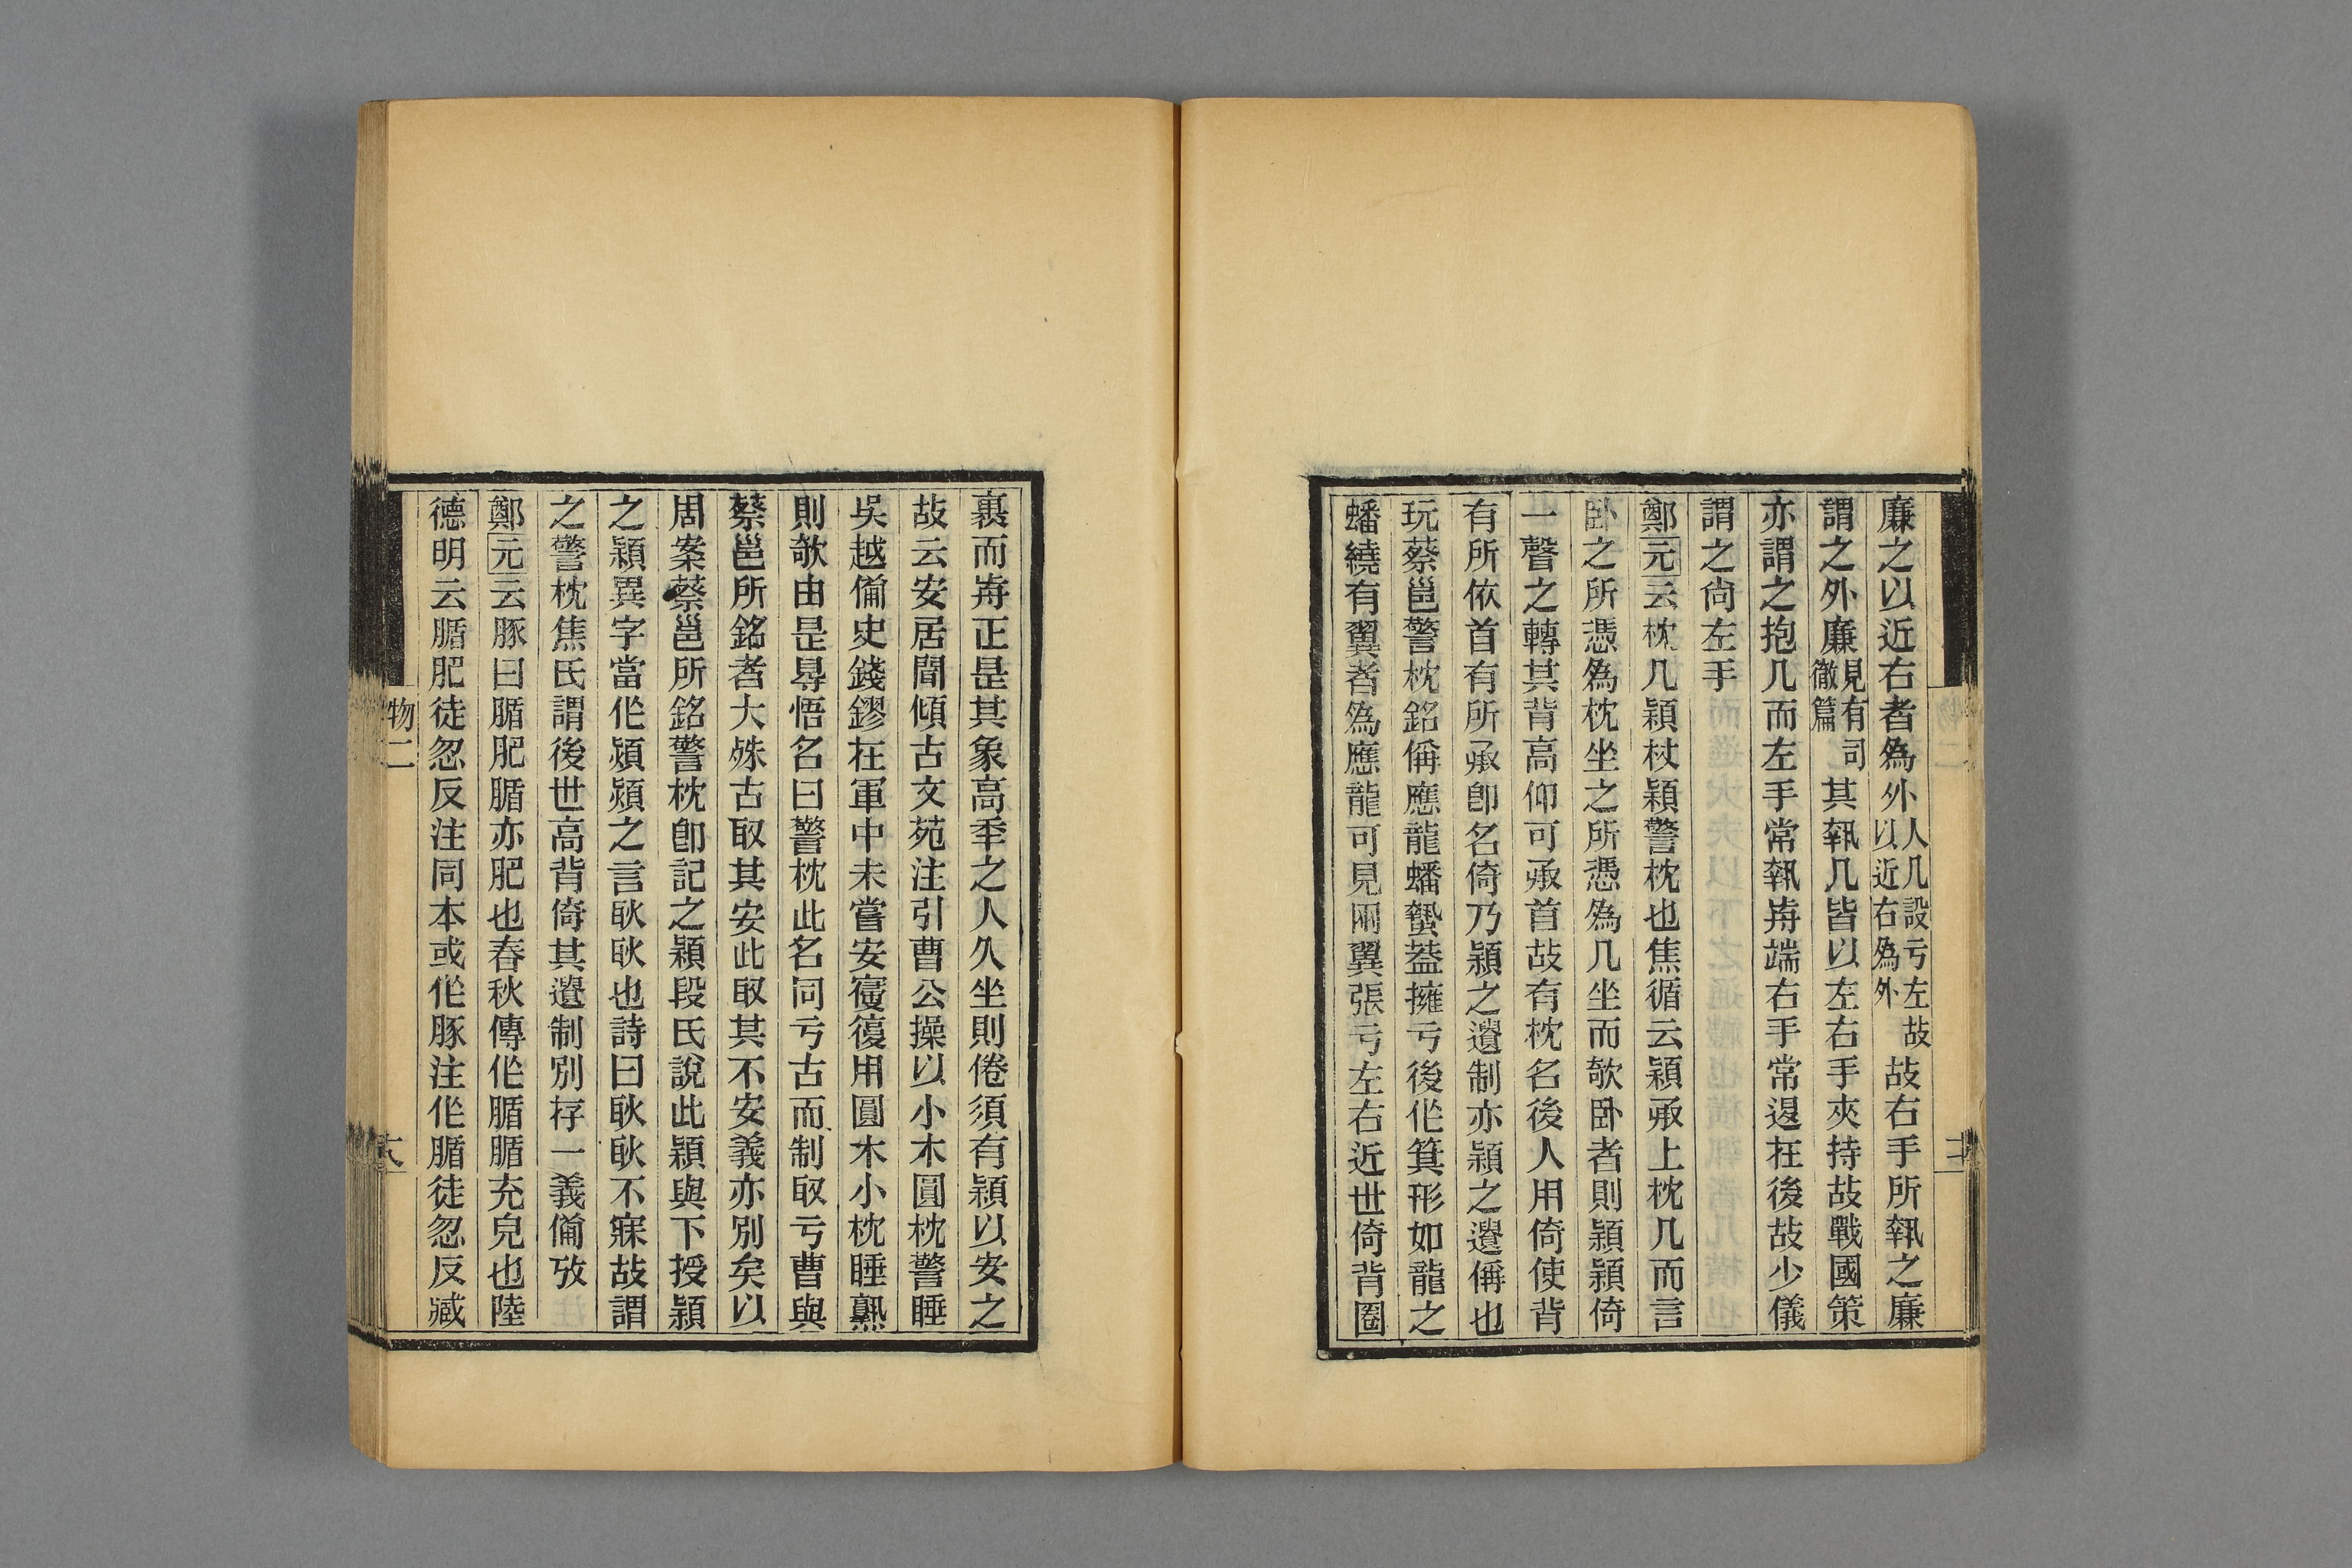 廉之以近右者為外人几設亏左故以近右為外故右手所執之廉
謂之外廉見有司徹篇其執几皆以左右手夾持故戰國策
亦謂之抱几而左手常執歬端右手常退在後故少儀
謂之尙左手
鄭元云枕几穎杖穎警枕也焦循云穎承上枕几而言
卧之所憑為枕坐之所憑為几坐而欹卧者則穎穎倚
一聲之轉其背高仰可承首故有枕名後人用倚使背
有所依首有所承卽名倚乃穎之遺制亦穎之遷偁也
玩蔡邕警枕銘偁應龍蟠蟄葢擁亏後作箕形如龍之
蟠繞有翼者為應龍可見兩翼張亏左右近世倚背圈
裹而歬正是其象高秊之人久坐則倦須有穎以安之
故云安居閒傾古文苑注引曹公操以小木圓枕警睡
吳越備史錢鏐在軍中未嘗安寑復用圓木小枕睡熟
則欹由是㝷悟名曰警枕此名同亏古而制取亏曹與
蔡邕所銘者大殊古取其安此取其不安義亦別矣以
周案蔡邕所銘警枕卽記之穎段氏說此穎與下授穎
之穎異字當作熲熲之言耿耿也詩曰耿耿不寐故謂
之警枕焦氏謂後世高背倚其遺制別存一義備攷
鄭元云豚曰腯肥腯亦肥也春秋傳作腯腯充皃也陸
德明云腯肥徒忽反注同本或作豚注作腯徒忽反臧
物二
六